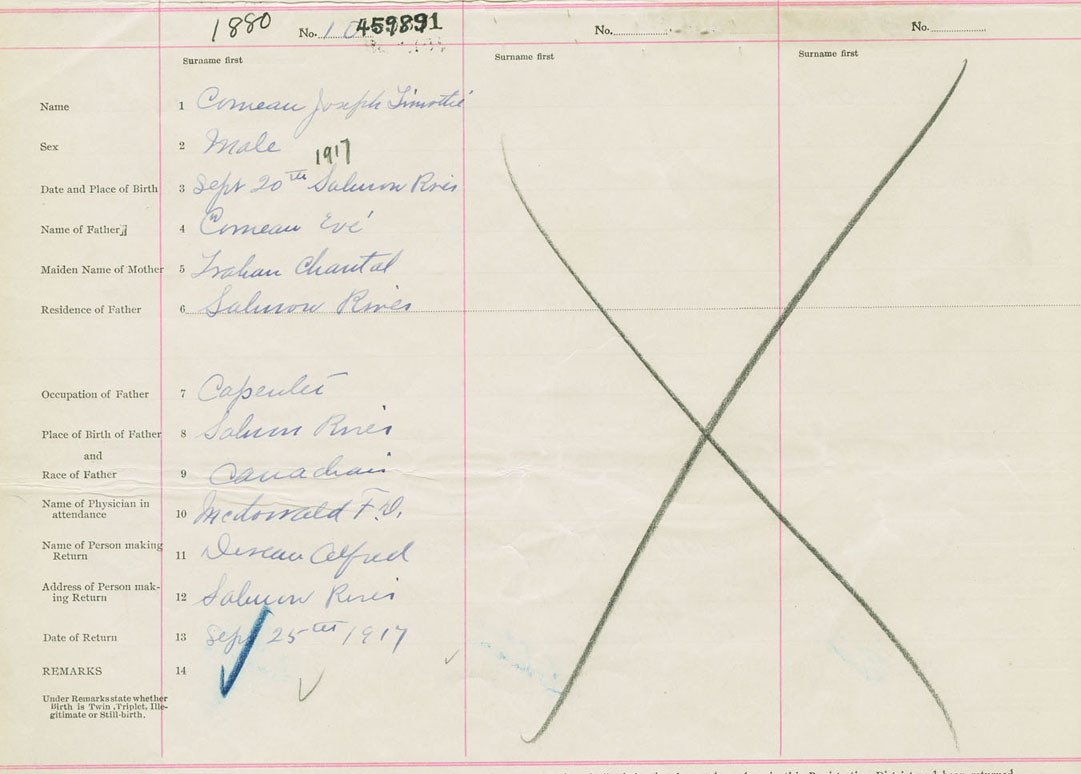 1880 No. 10 459891 No. No.
Surname first Surname first Surname first
Name 1 Comeau Joseph Timothé
Sex 2 Male
1917
Date and Place of Birth 3 Sept 20th Salmon River
Name of Father 4 Comeau Evé
Maiden Name of Mother 5 Trahan Chantal
Residence of Father 6 Salmon River
Occupation of Father 7 Capenter
Place of Birth of Father 8 Salmon River
and
Race of Father 9 Canadian
Name of Physician in
attendance 10 McDonald F.D.
Name of Person making
Return 11 Deveau Alfred
Address of Person mak-
ing Return 12 Salmon River
Date of Return 13 Sept 25th 1917
REMARKS 14
Under Remarks state whether
Birth is Twin, Triplet, Ille-
gitimate or Still-birth.